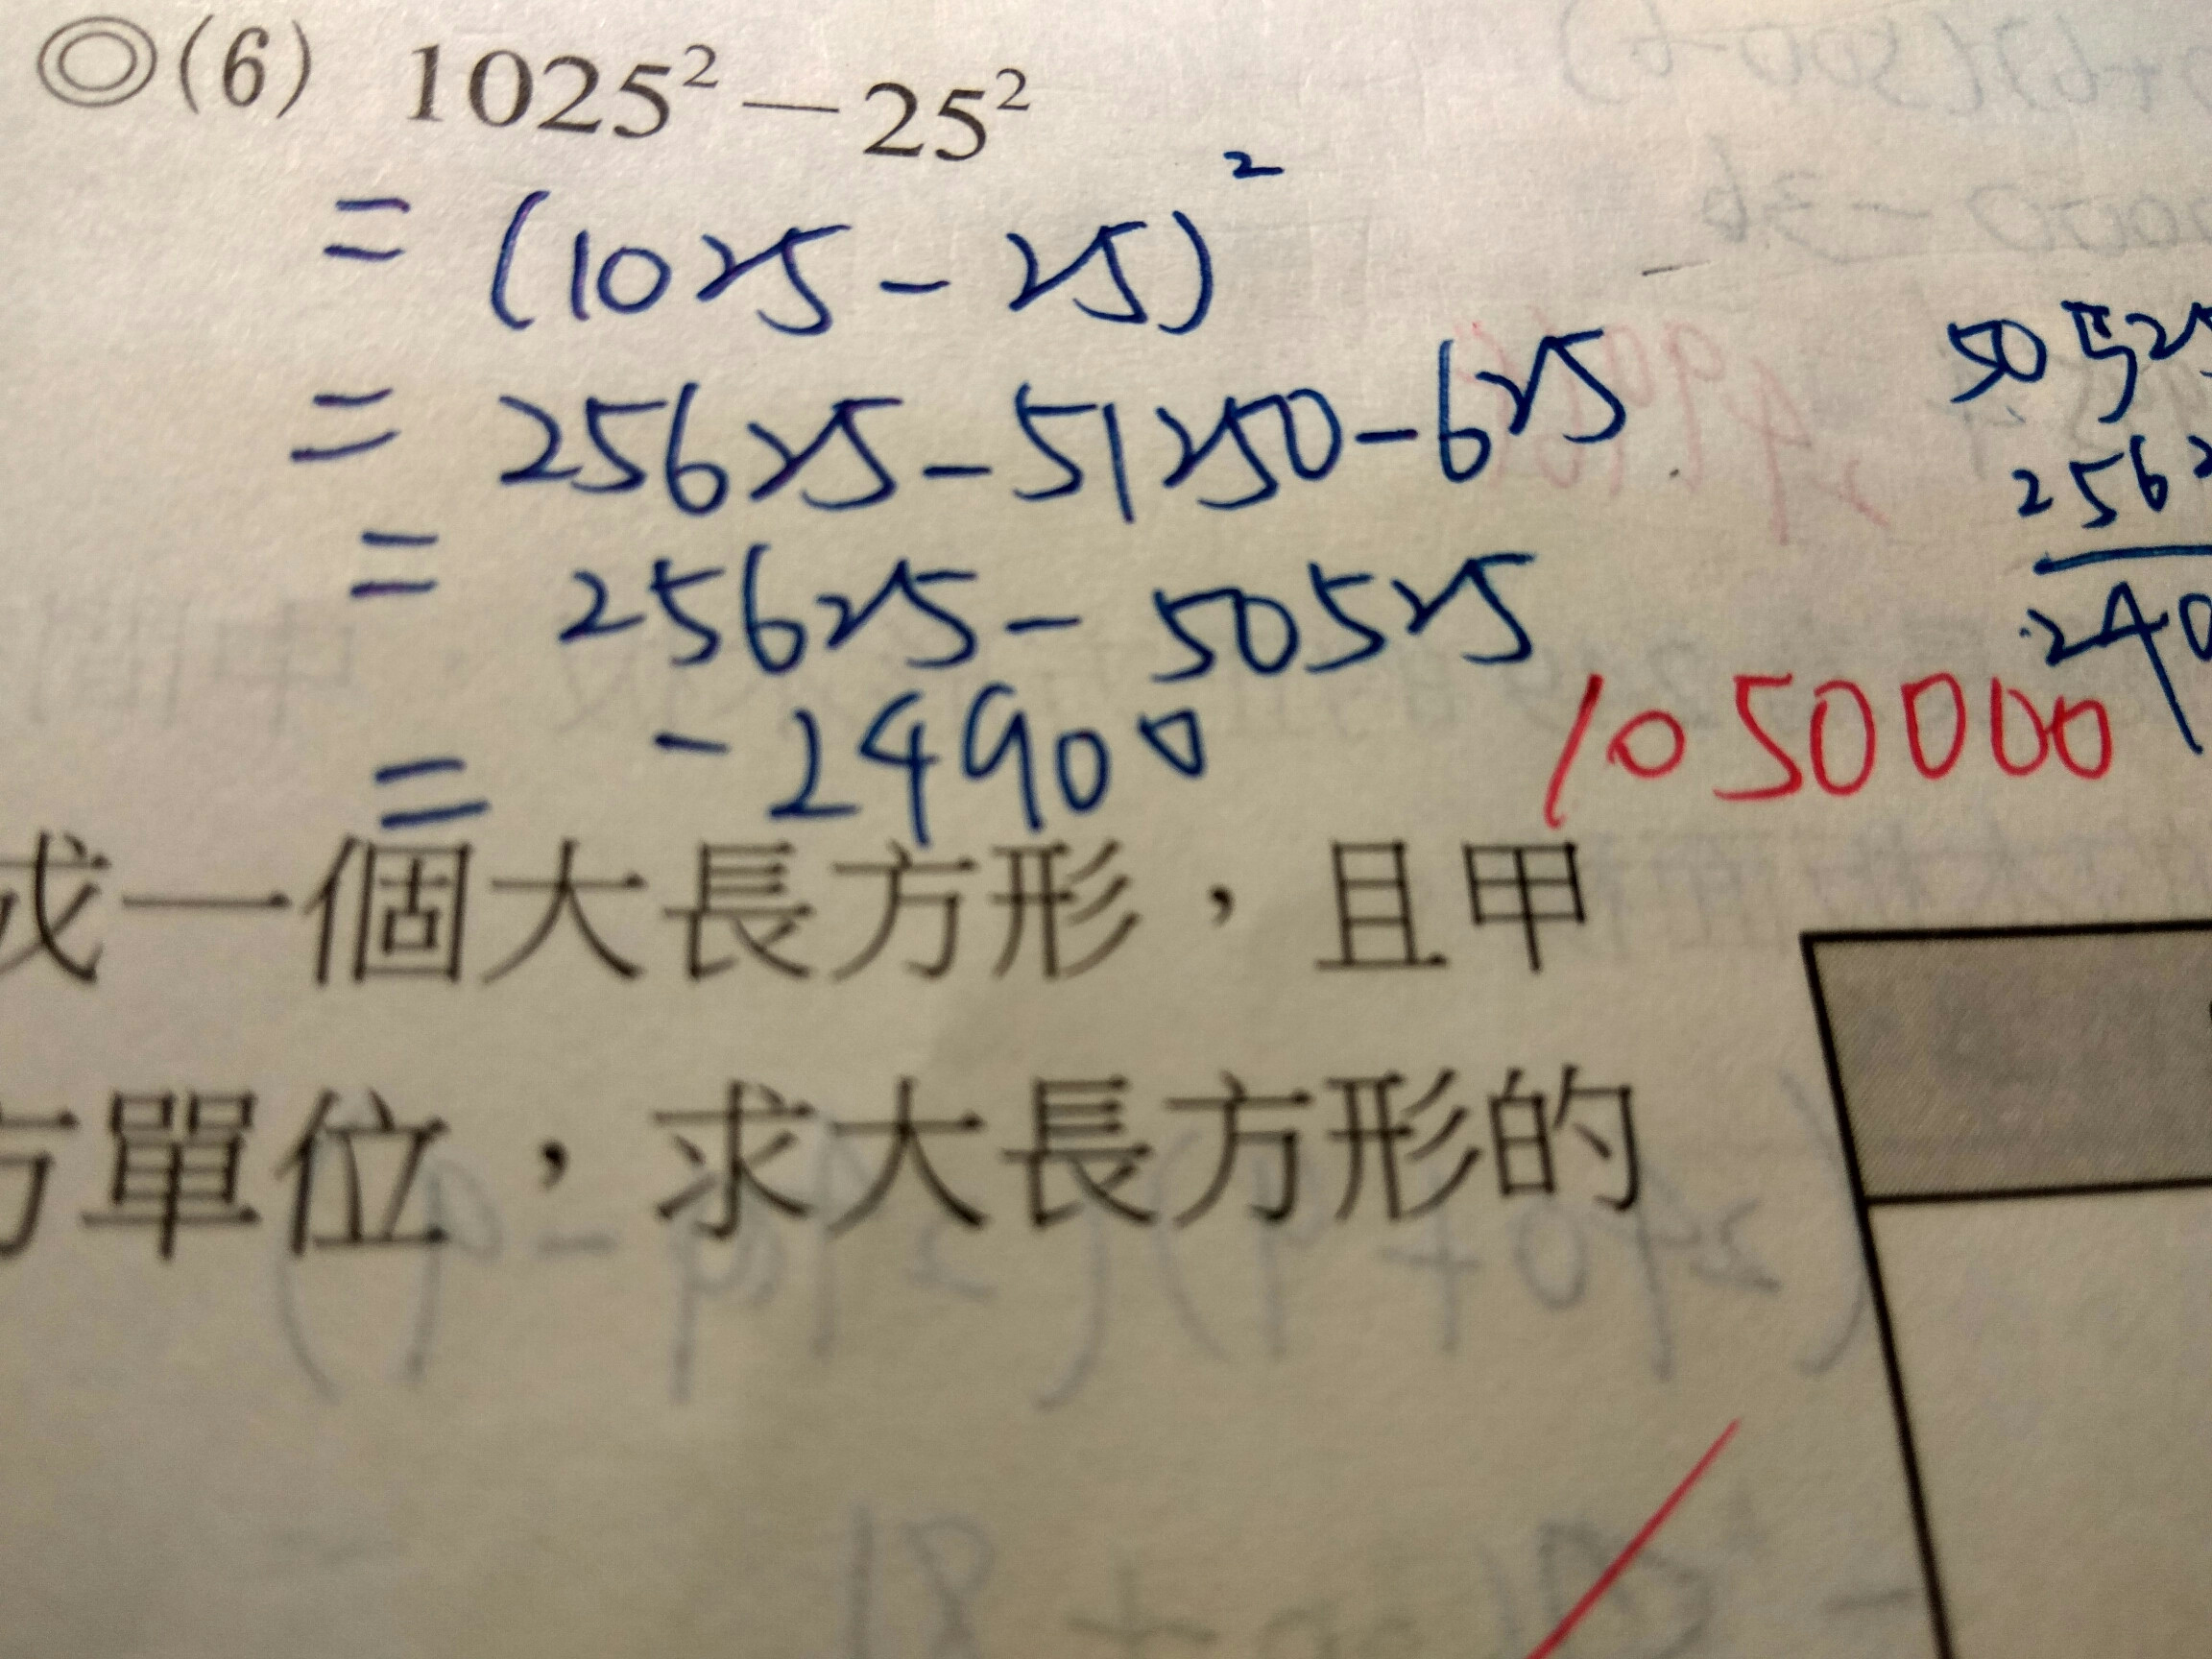 ◎(6) 1025²－25²
= (1025 - 25)²
= 25625 - 51250 - 625
= 25625 - 50525
= -24900
1050000
成一個大長方形，且甲
方單位，求大長方形的